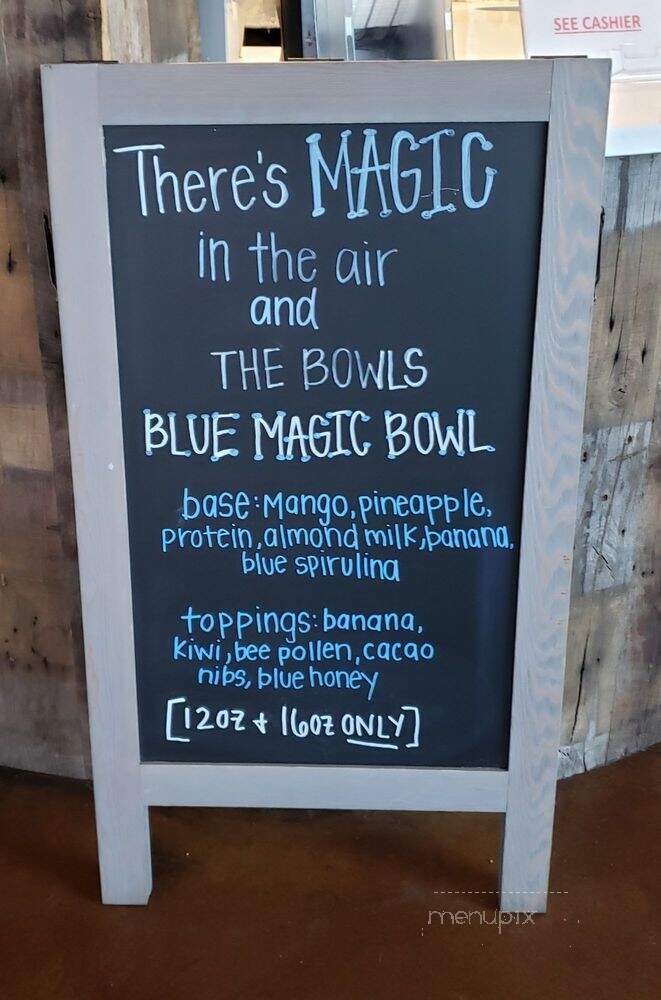 SEE CASHIER
There's MAGIC
in the air
and
THE BOWLS
BLUE MAGIC BOWL
base: Mango, pineapple,
protein, almond milk, banana,
blue spirulina
toppings: banana,
kiwi, bee pollen, cacao
nibs, blue honey
[12oz + 16oz ONLY]
menupix